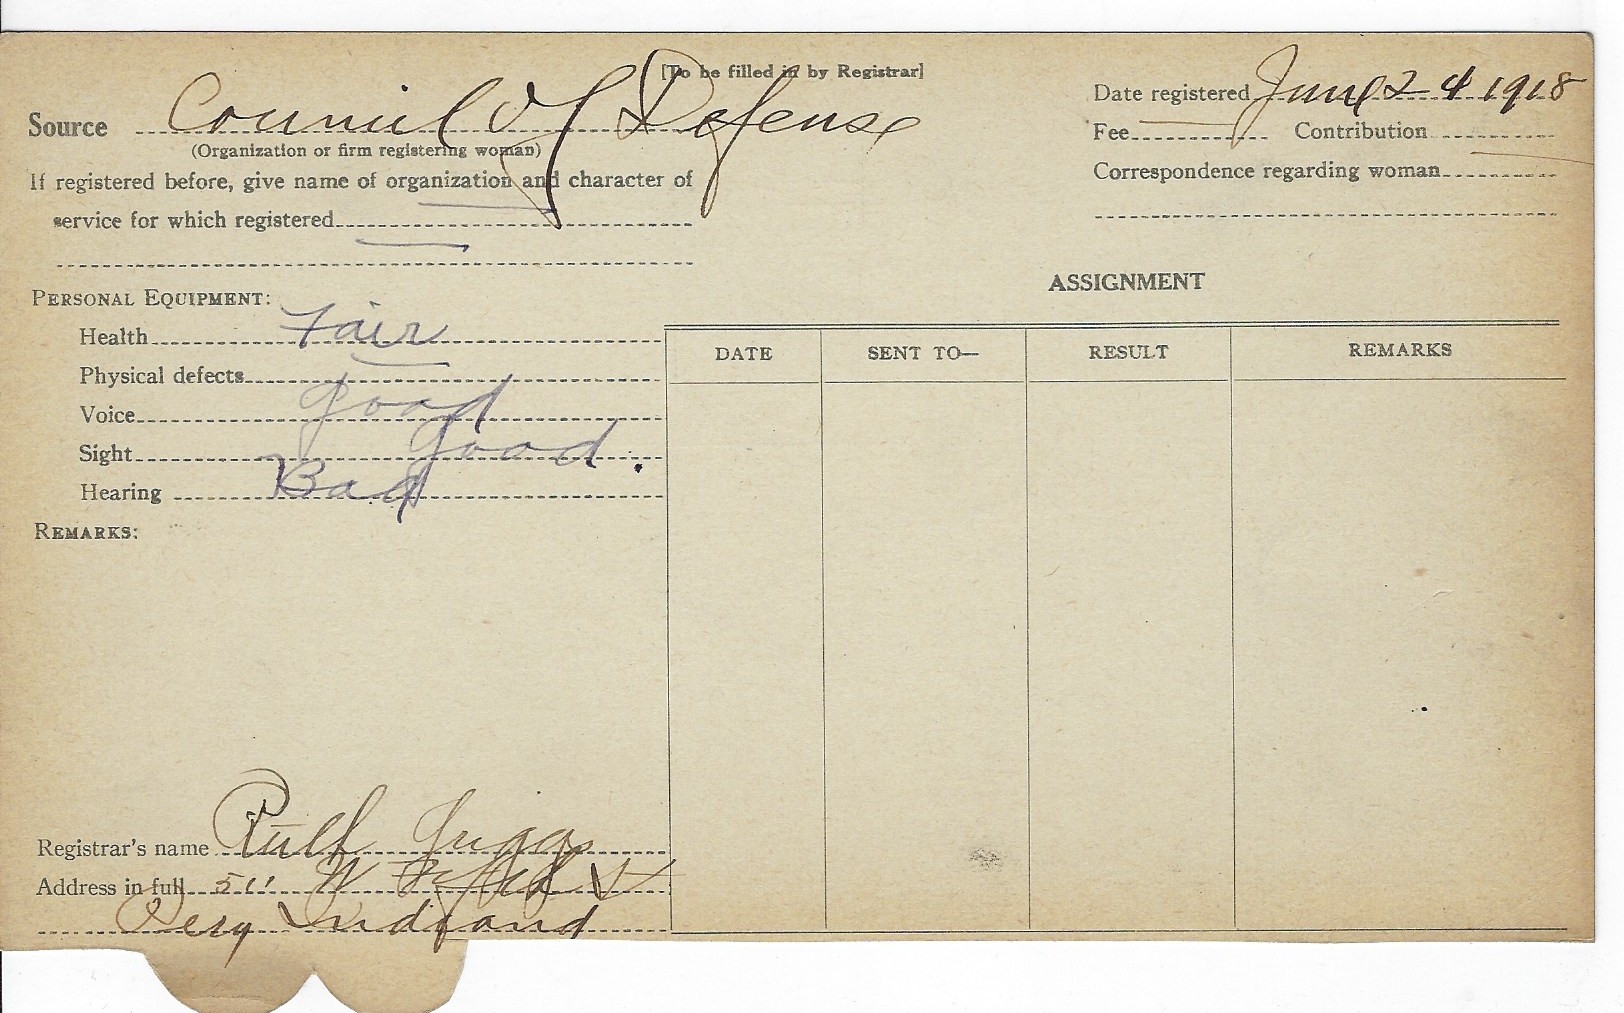 [To be filled in by Registrar]
Source Council of Defense
(Organization or firm registering woman)
If registered before, give name of organization and character of
service for which registered
Date registered June 24 1918
Fee Contribution
Correspondence regarding woman
PERSONAL EQUIPMENT:
Health Fair
Physical defects
Voice Good
Sight Good.
Hearing Bad
REMARKS:
ASSIGNMENT
DATE SENT TO— RESULT REMARKS
Registrar's name Ruth
Address in full 511 W
Peru Indiana